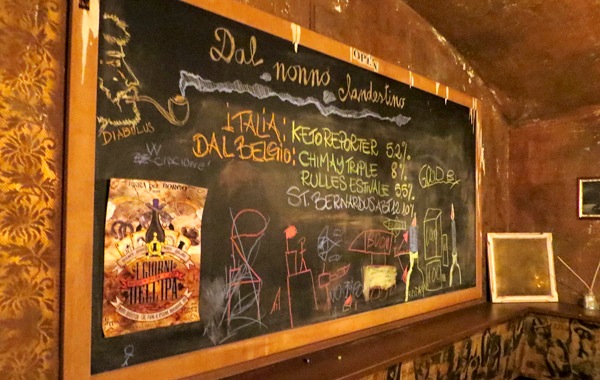 OPEN
Dal nonno clandestino
DIABULUS
W
ITALIA: KETO REPORTER 5.2%
DAL BELGIO: CHIMAY TRIPLE 8%
RULLES ESTIVALE 5.5%
ST. BERNARDUS ABT 12 10%
BIRRA DEL BORGO
I GIORNI
DELL'IPA
BUONI